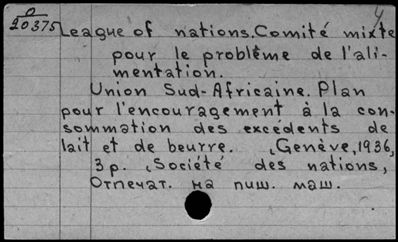 4
0
20375
League of nations. Comité mixte
pour le problême de l'ali-
mentation.
Union Sud-Africaine. Plan
pour l'encouragement à la con-
sommation des excedents de
lait et de beurre. Genève, 1936,
3 p. Société des nations,
Отпечат. на пиш. маш.